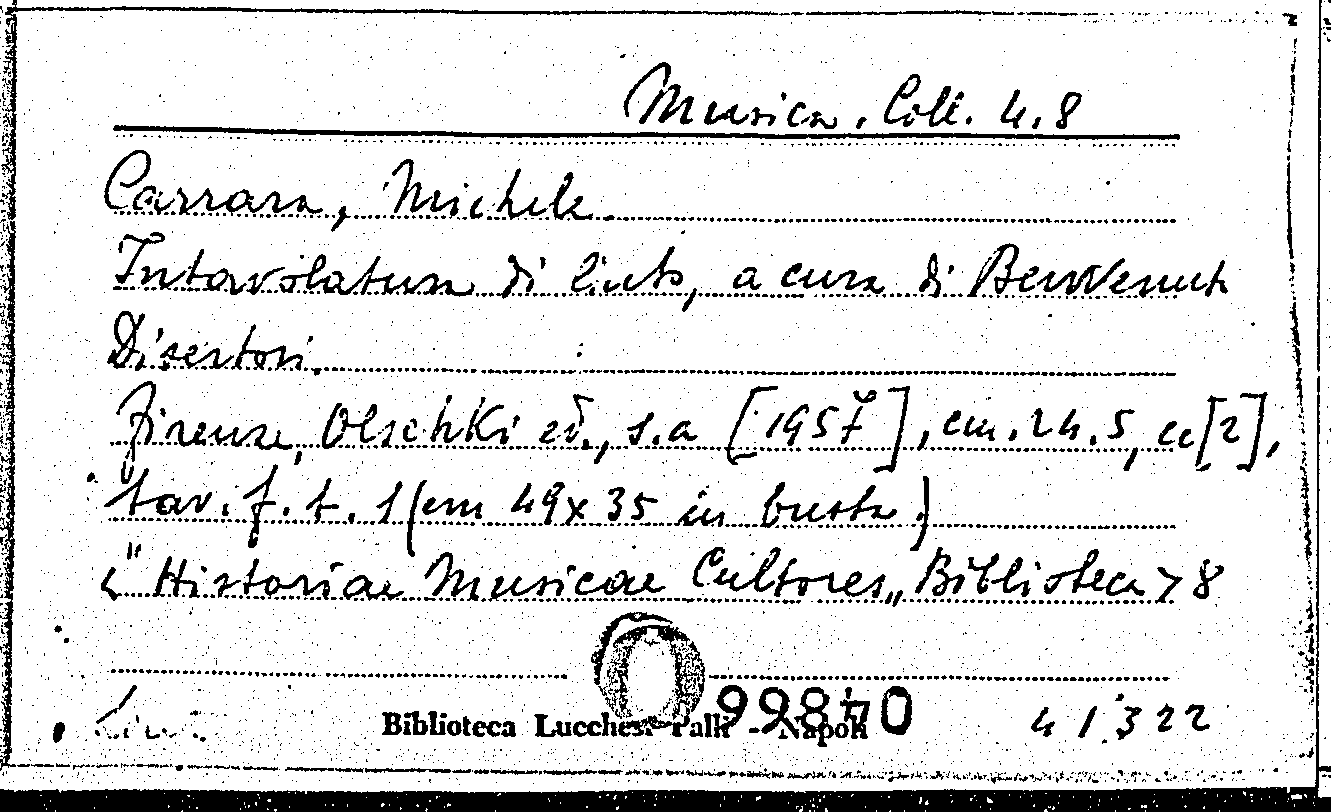 Musica. Coll. 4.8
Carrara, Michele.
Intavolatura di liuto, a cura di Benvenuto
Disertori.
Firenze, Olschki ed., s.a [1957], cm. 24.5, cc [2],
tav. f. t. 1 (cm 49x35 in busta.)
<"Historiae Musicae Cultores„ Biblioteca> 8
Biblioteca Lucchesi Palli - Napoli
41322